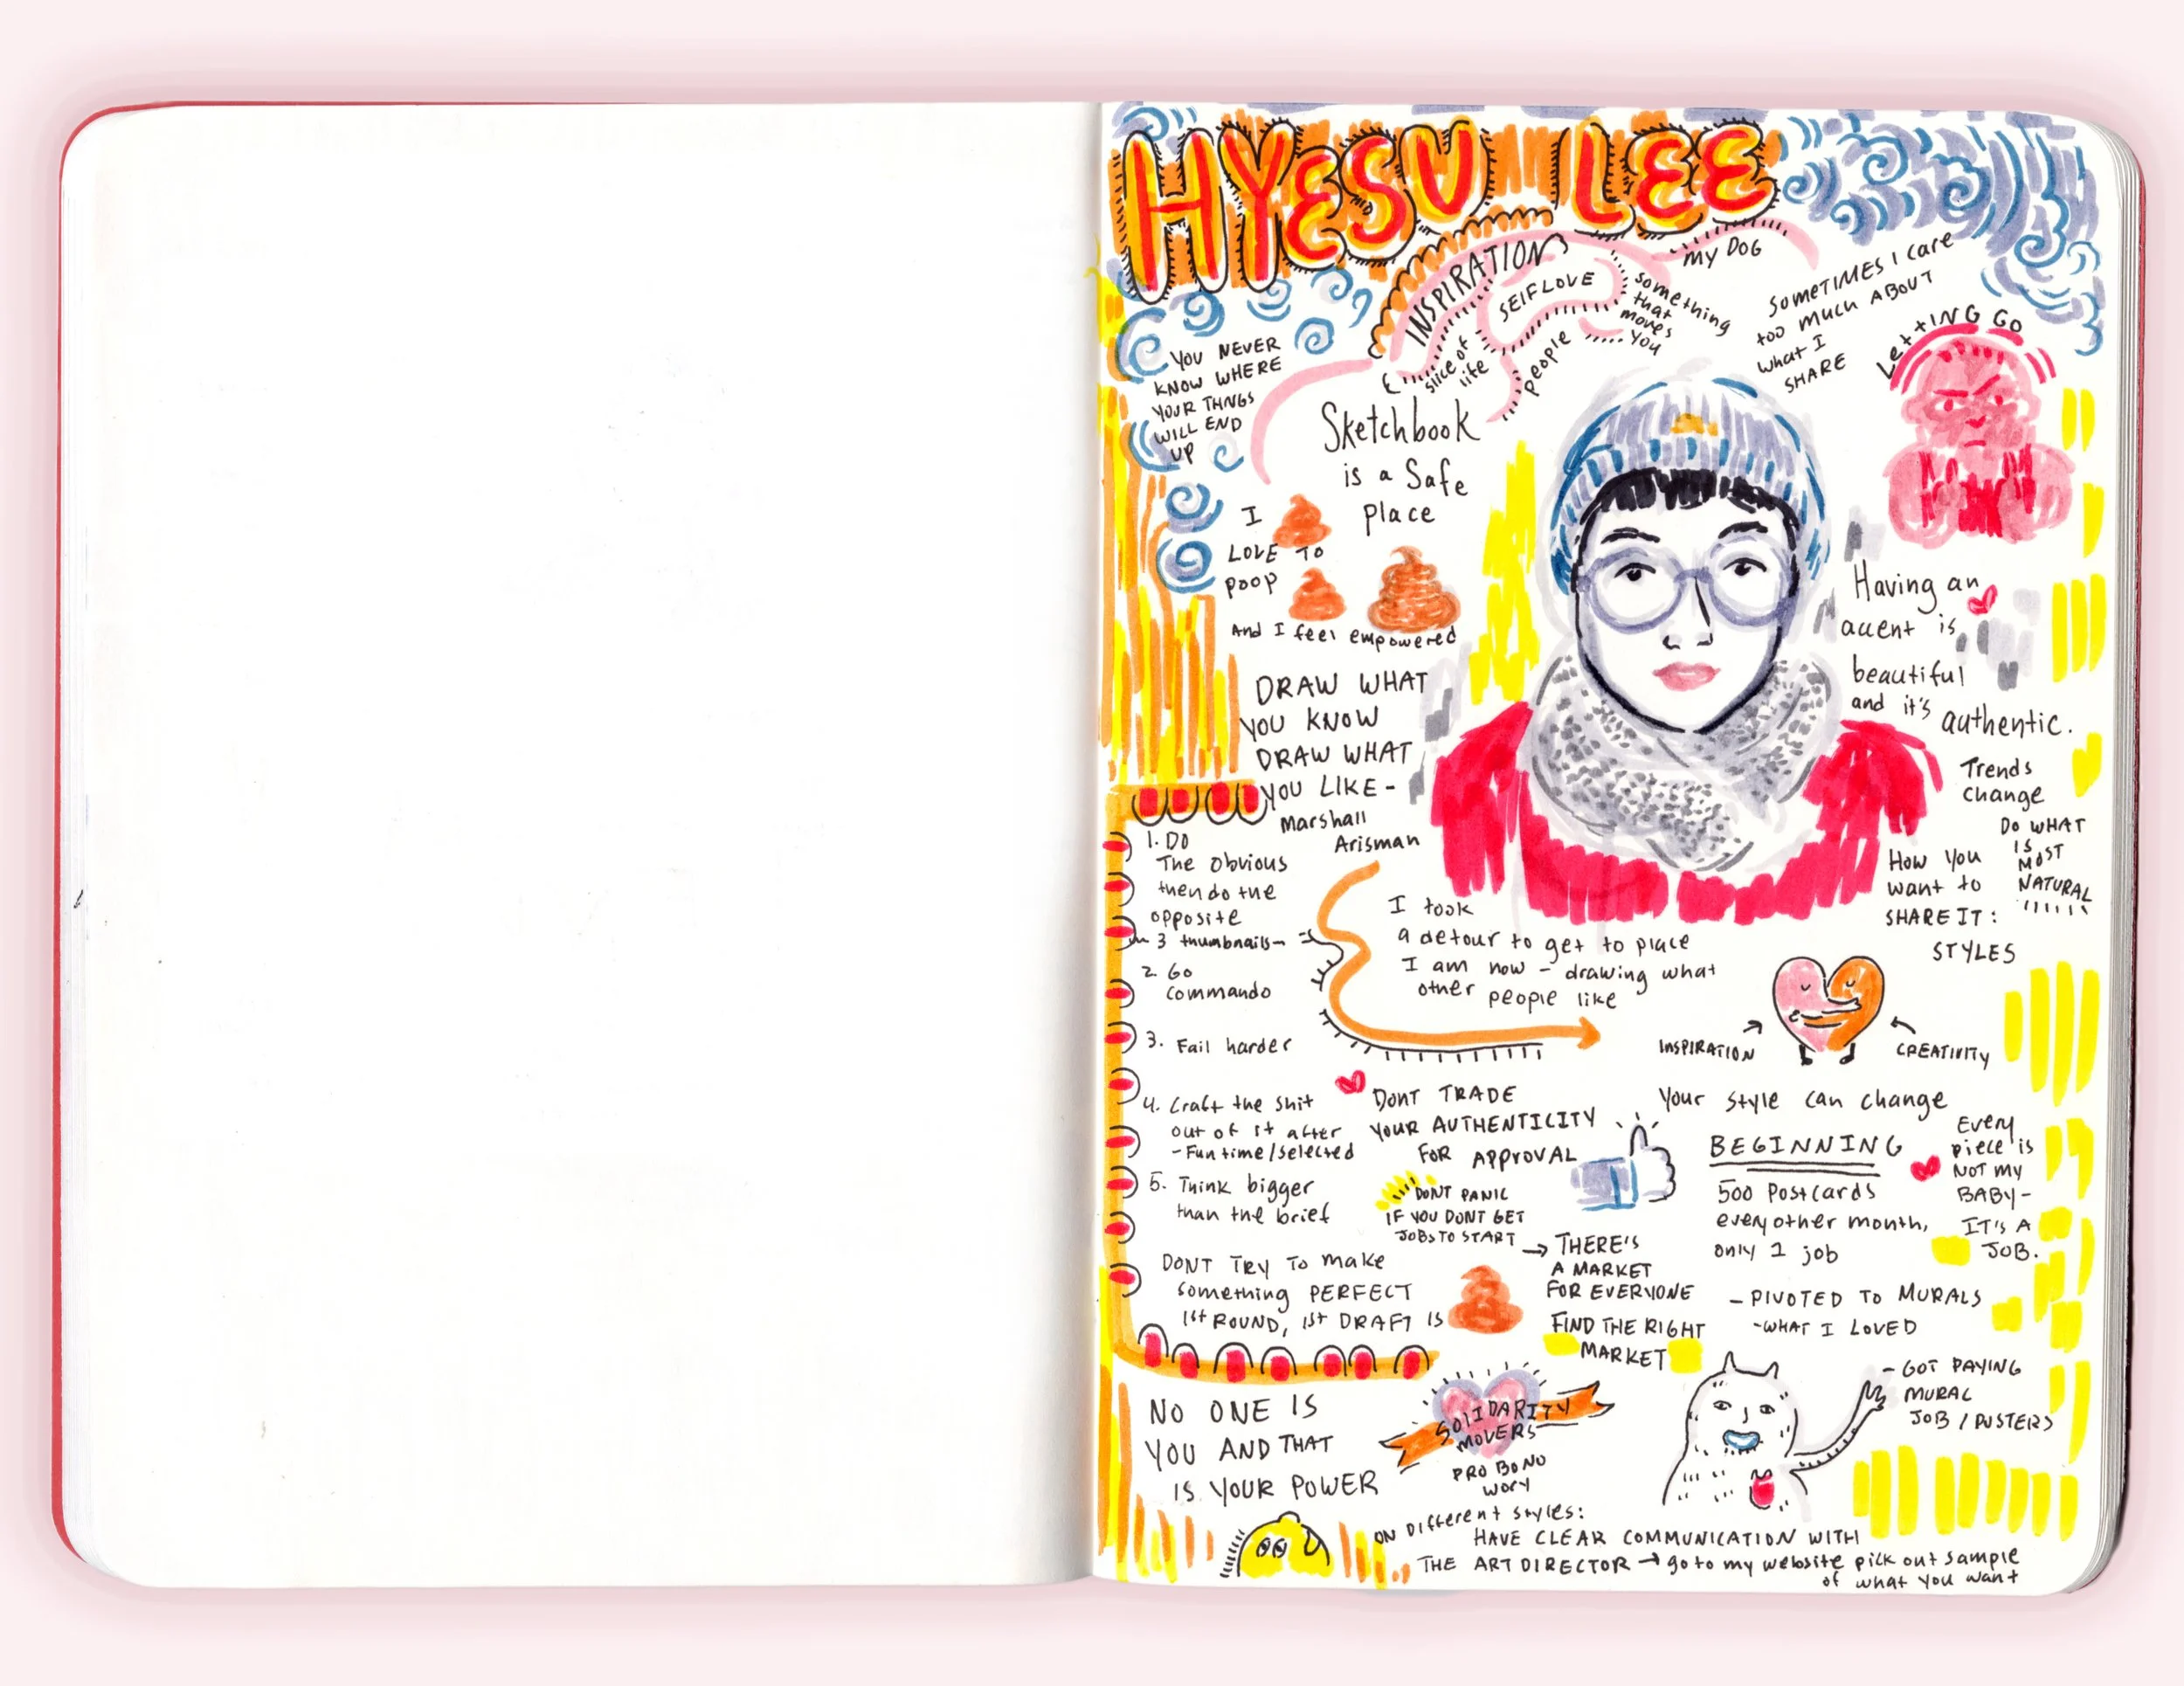 HYESU LEE
INSPIRATION
SELFLOVE
slice of
life
people
something
that
moves
you
my DOG
SOMETIMES I care
too much ABOUT
what I
SHARE
LettING GO
YOU NEVER
KNOW WHERE
YOUR THNGS
WILL END
UP
Sketchbook
is a Safe
place
I
LOVE TO
POOP
And I feel empowered
DRAW WHAT
YOU KNOW
DRAW WHAT
YOU LIKE -
Marshall
Arisman
Having an
accent is
beautiful
and it's authentic.
Trends
change
DO WHAT
IS
MOST
NATURAL
How you
want to
SHARE IT:
STYLES
1. DO
The obvious
then do the
opposite
- 3 thumbnails-
2. Go
commando
3. Fail harder
4. Craft the shit
out of it after
- Fun time/selected
5. Think bigger
than the brief
DONT TRY To make
something PERFECT
1st ROUND, 1st DRAFT IS
I took
a detour to get to place
I am now - drawing what
other people like
INSPIRATION
CREATIVITY
DONT TRADE
YOUR AUTHENTICITY
FOR APPROVAL
DONT PANIC
IF YOU DONT GET
JOBS TO START
→ THERE'S
A MARKET
FOR EVERYONE
FIND THE RIGHT
MARKET
Your style can change
BEGINNING
500 Postcards
every other month,
only 1 job
Every
piece is
NOT MY
BABY-
IT'S A
JOB.
- PIVOTED TO MURALS
- WHAT I LOVED
- GOT PAYING
MURAL
JOB / POSTERS
NO ONE IS
YOU AND THAT
IS YOUR POWER
SOLIDARITY
MOVERS
PRO BONO
work
ON Different styles:
HAVE CLEAR COMMUNICATION WITH
THE ART DIRECTOR → go to my website pick out sample
of what you want